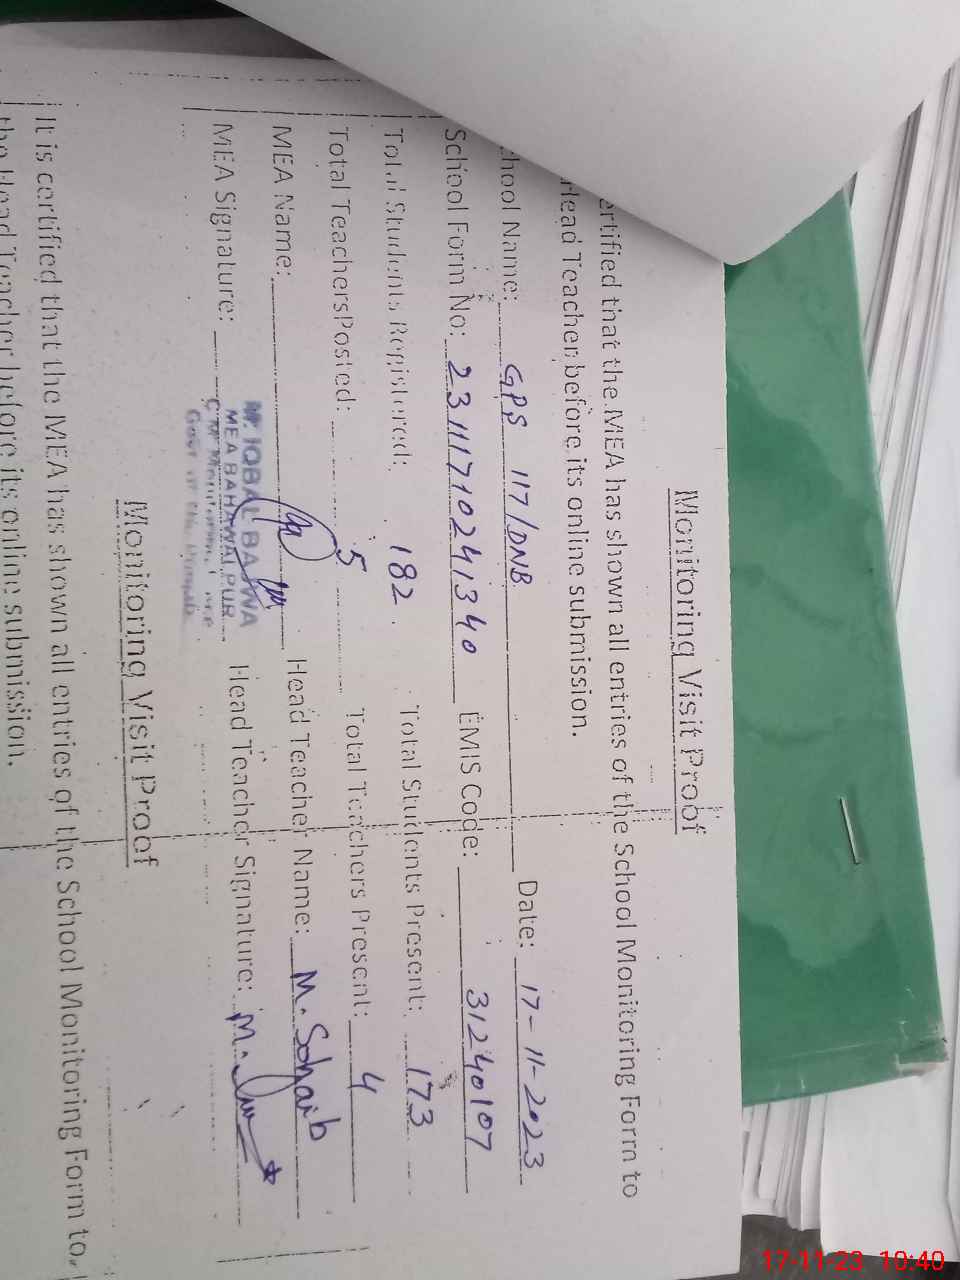 Monitoring Visit Proof
ertified that the MEA has shown all entries of the School Monitoring Form to
Head Teacher before its online submission.
chool Name: GPS 117/DNB Date: 17-11-2023
School Form No: 23111710241340 EMIS Code: 31240107
Total Students Registered: 182 Total Students Present: 173
Total TeachersPosted: 5 Total Teachers Present: 4
MEA Name: Head Teacher Name: M. Sohaib
MEA Signature: Head Teacher Signature:
M. IQBAL BAJWA
MEA BAHAWALPUR
Monitoring Visit Proof
It is certified that the MEA has shown all entries of the School Monitoring Form to
the Head Teacher before its online submission.
17-11-23 10:40